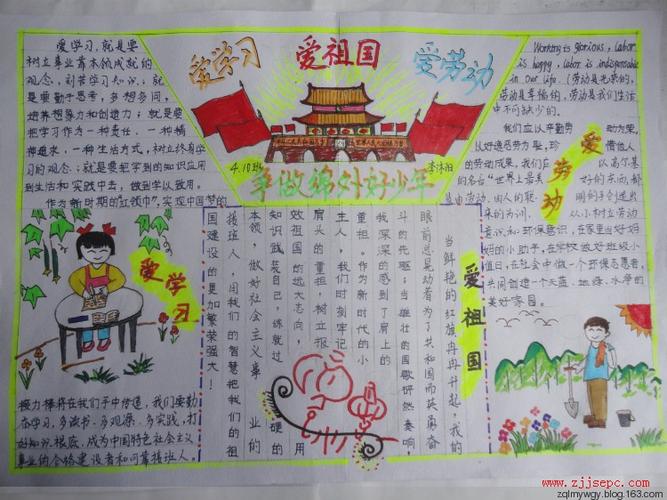 爱学习
爱祖国
爱劳动
4.10班
李沐阳
争做绵外好少年
爱学习,就是要
树立事业靠本领成就的
观念,刻苦学习知识;就
是要勤于思考,多想多问,
培养想象力和创造力;就是要
把学习作为一种责任,一种精
神追求,一种生活方式,树立终身学
习的观念;就是要把学到的知识应用
到生活和实践中去,做到学以致用。
作为新时期的红领巾,实现中国梦的
爱学习
接力棒将在我们手中传递,我们要勤
奋学习,多读书、多观察、多实践,打
好知识根底,成为中国特色社会主义
事业的合格建设者和可靠接班人。
爱祖国
当鲜艳的红旗冉冉升起,我的
眼前总晃动着为了共和国而英勇奋
斗的先驱;当雄壮的国歌砰然奏响,
我深深的感到了肩上的
重担。作为新时代的小
主人,我们时刻牢记
肩头的重担,树立报
效祖国的远大志向,用
知识武装自己,练就过硬的
本领,做好社会主义事业的
接班人,用我们的智慧把我们的祖
国建设的更加繁荣强大!
Working is glorious, labor
is happy, labor is indispensable
in our life.(劳动是光荣的,
劳动是幸福的,劳动是我们生活
中不可缺少的。
爱劳动
我们应以辛勤劳动为荣,
以好逸恶劳为耻,珍惜他人
的劳动成果,我们应以高尔基
的名言“世界上最美好的东西,都
是由劳动、由人的聪明的手创造出
来的”为训,从小树立劳动
意识和环保意识,在家里当好妈
妈的小助手,在学校做好班级小
值日,在社会中做一个环保志愿者,
共同创造一个天蓝、地绿、水净的
美好家园。
www.zjjsepc.com
zqlmywgy.blog.163.com